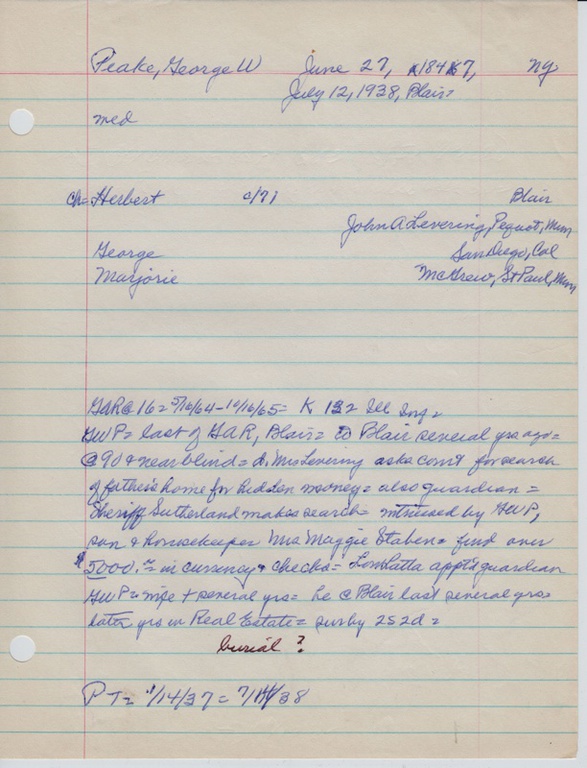 Peake, George W June 27, 1847, NY
July 12, 1938, Blair=
med
ch= Herbert c/71 Blair
John A Levering, Pequot, Minn
George San Diego, Cal
Marjorie McGrew, St Paul, Minn
GAR@16= 5/16/64-10/16/65= K 132 Ill Inf=
GWP= last of GAR, Blair= to Blair several yrs ago=
@90 & near blind= d. Mrs Levering asks court for search
of father's home for hidden money= also guardian=
Sheriff Sutherland makes search= witnessed by HWP,
son & housekeeper Mrs Maggie Staben= find over
$5000.00 in currency & checks= appt'd guardian
GWP= wife + several yrs= he @ Blair last several yrs=
later yrs in Real Estate= sur by 2S 2d=
burial ?
PT= 1/14/37= 7/14/38